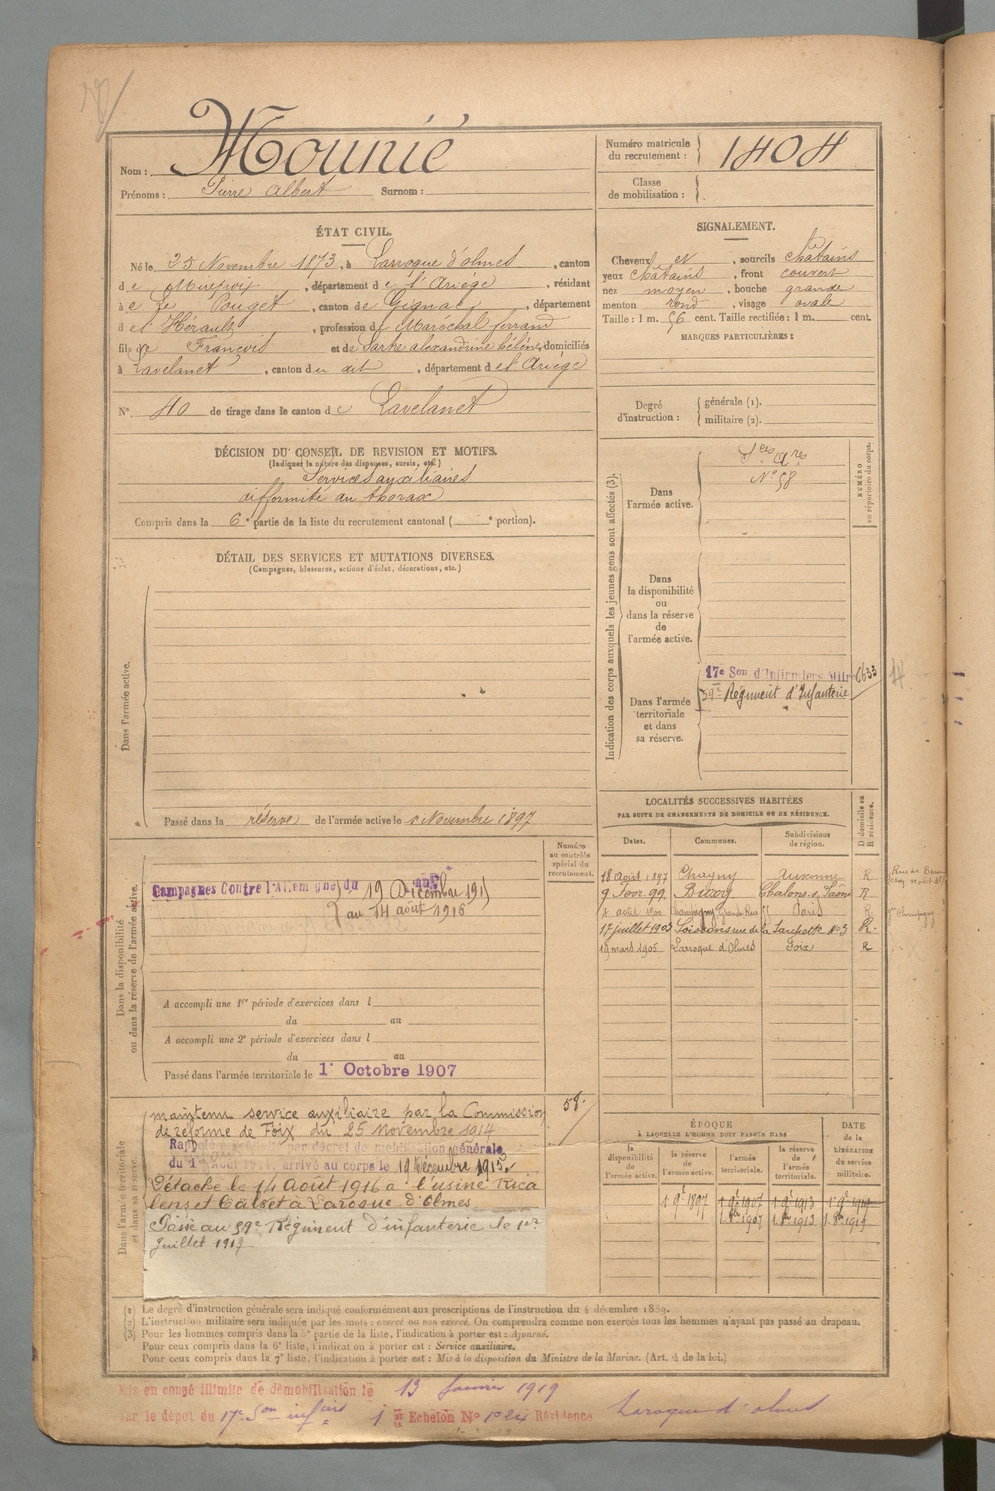 Nom : Mounié
Prénoms : Pierre Albert Surnom :
Numéro matricule du recrutement : 1404
Classe de mobilisation :
ÉTAT CIVIL.
Né le 25 Novembre 1873, à Larroque d'olmes, canton
de Mirepoix, département de l'Ariège, résidant
à Le Pouget, canton de Gignac, département
de l'Hérault, profession de Maréchal ferrand
fils de François et de Sarke alexandrine hélène, domiciliés
à Lavelanet, canton du dit, département de l'Ariège
N° 40 de tirage dans le canton de Lavelanet
SIGNALEMENT.
Cheveux et, sourcils châtains
yeux châtains, front couvert
nez moyen, bouche grande
menton rond, visage ovale
Taille : 1 m. 56 cent. Taille rectifiée : 1 m. cent.
MARQUES PARTICULIÈRES :
Degré d'instruction : générale (1).
militaire (2).
DÉCISION DU CONSEIL DE REVISION ET MOTIFS.
(Indiquer la nature des dispenses, sursis, etc.)
Services auxiliaires
difformité du thorax
Compris dans la 6e partie de la liste du recrutement cantonal ( e portion).
DÉTAIL DES SERVICES ET MUTATIONS DIVERSES.
(Campagnes, blessures, actions d'éclat, décorations, etc.)
Dans l'armée active.
Passé dans la réserve de l'armée active le 1 Novembre 1897
Indication des corps auxquels les jeunes gens sont affectés (3).
NUMÉRO au répertoire du corps.
Dans l'armée active.
Sces Ares
N° 58
Dans la disponibilité ou dans la réserve de l'armée active.
Dans l'armée territoriale et dans sa réserve.
17e Son d'Infirmiers Milit 6633
59e Régiment d'Infanterie
LOCALITÉS SUCCESSIVES HABITÉES
PAR SUITE DE CHANGEMENTS DE DOMICILE OU DE RÉSIDENCE.
Dates. Communes. Subdivisions de région. D domicile ou R résidence.
18 août 1897 Chagny Auxonne R
9 Fevr. 99 Chalons s/ Saône R
août 1900 Champigny Grande Rue Paris R
17 juillet 1903 Soissons rue de la N° 3 R.
19 mars 1905 Larroque d'Olmes Foix R
Dans la disponibilité ou dans la réserve de l'armée active.
Numéro au contrôle spécial du recrutement.
Campagnes Contre l'Allemagne du 19 Décembre 1915
au 14 août 1916
A accompli une 1re période d'exercices dans l
du au
A accompli une 2e période d'exercices dans l
du au
Passé dans l'armée territoriale le 1er Octobre 1907
Dans l'armée territoriale et dans sa réserve.
maintenu service auxiliaire par la Commission
de réforme de Foix du 25 Novembre 1914
58.
Rappelé par décret de mobilisation générale
du 1er Août 1914, arrivé au corps le 19 Décembre 1915.
Détaché le 14 Août 1916 à l'usine Rica
lens et Calvet à Laroque d'Olmes
Passé au 59e Régiment d'infanterie le 1er
Juillet 1917
ÉPOQUE
À LAQUELLE L'HOMME DOIT PASSER DANS
DATE de la LIBÉRATION du service militaire.
la disponibilité de l'armée active. la réserve de l'armée active. l'armée territoriale. la réserve de l'armée territoriale.
1 9e 1897 1 9e 1907 1 9e 1913 1 9e 1919
1. 8bre 1907 1. 8e 1913 1. 8e 1919
Le degré d'instruction générale sera indiqué conformément aux prescriptions de l'instruction du 4 décembre 1889.
L'instruction militaire sera indiquée par les mots : exercé ou non exercé. On comprendra comme non exercés tous les hommes n'ayant pas passé au drapeau.
Pour les hommes compris dans la 5e partie de la liste, l'indication à porter est : Ajourné.
Pour ceux compris dans la 6e liste, l'indication à porter est : Service auxiliaire.
Pour ceux compris dans la 7e liste, l'indication à porter est : Mis à la disposition du Ministre de la Marine. (Art. 4 de la loi.)
Mis en congé illimité de démobilisation le 13 Janvier 1919
par le dépôt du 17e Son infiers 1er Echelon N° 1024 Résidence Laroque d'olmes